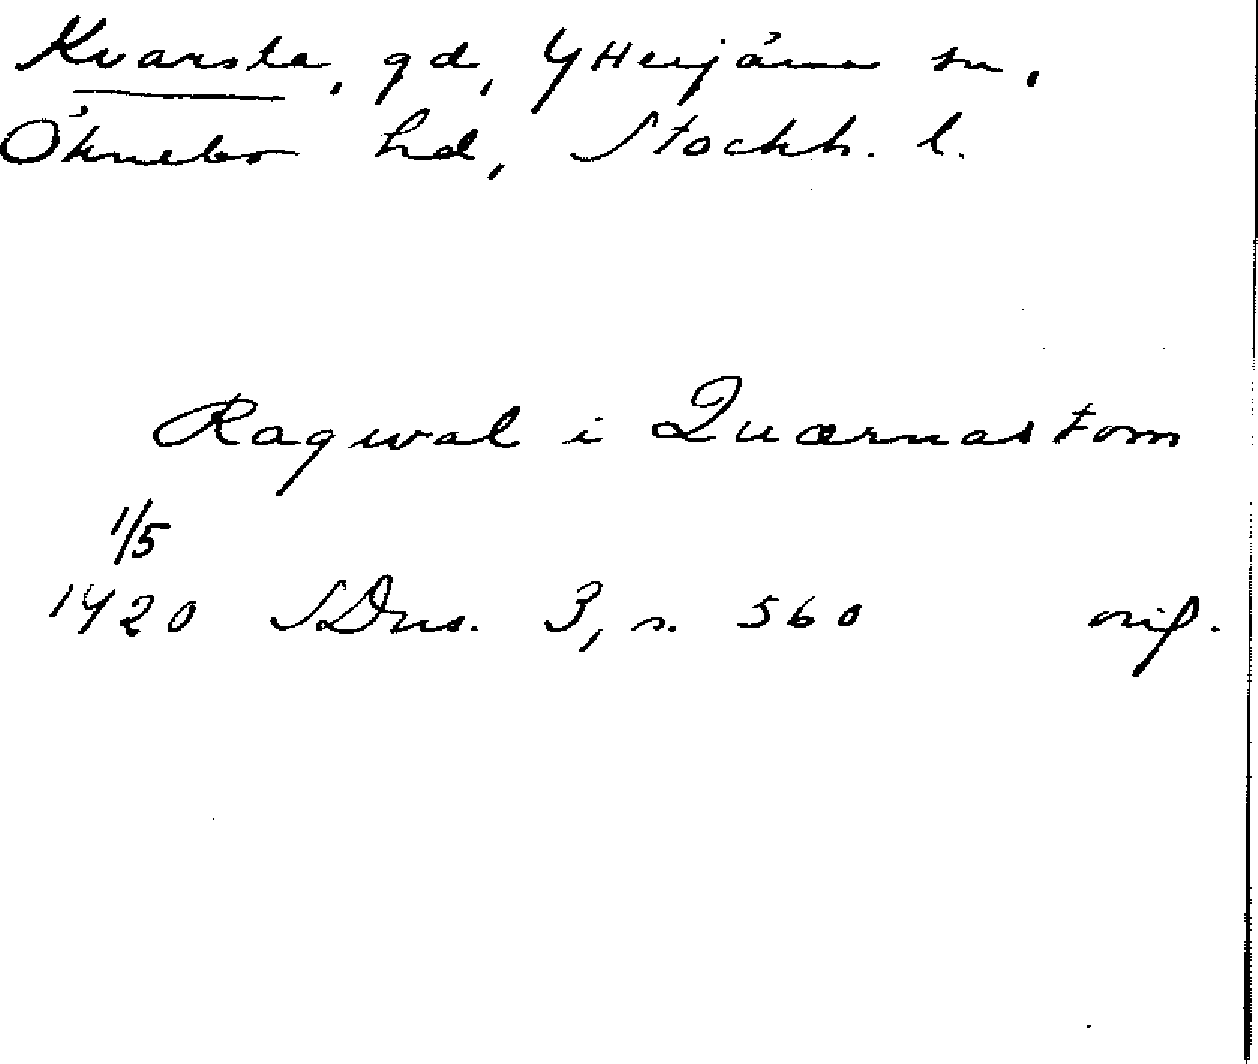 Kvarsta, gd, Ytterjärna sn,
Öknebo hd, Stockh. l.
Ragwal i Quærnastom
1/5
1420 SDns. 3, s. 560 orig.